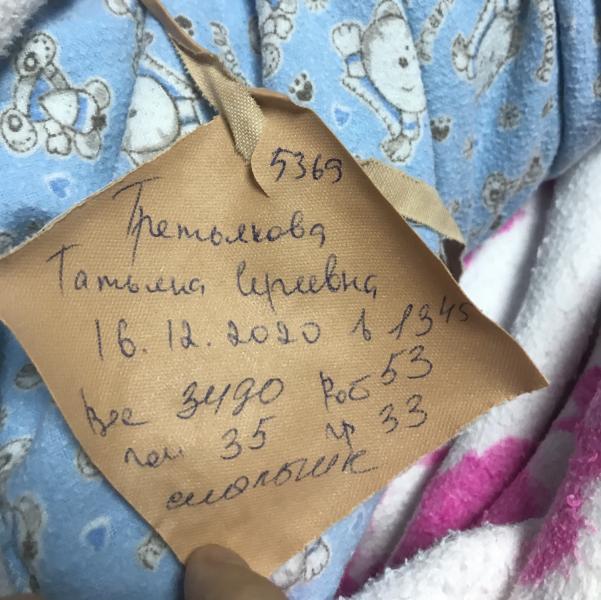 5369
Третьякова
Татьяна Сергеевна
16.12.2020 в 13 45
Вес 3490 Рост 53
гол 35 гр 33
мальчик